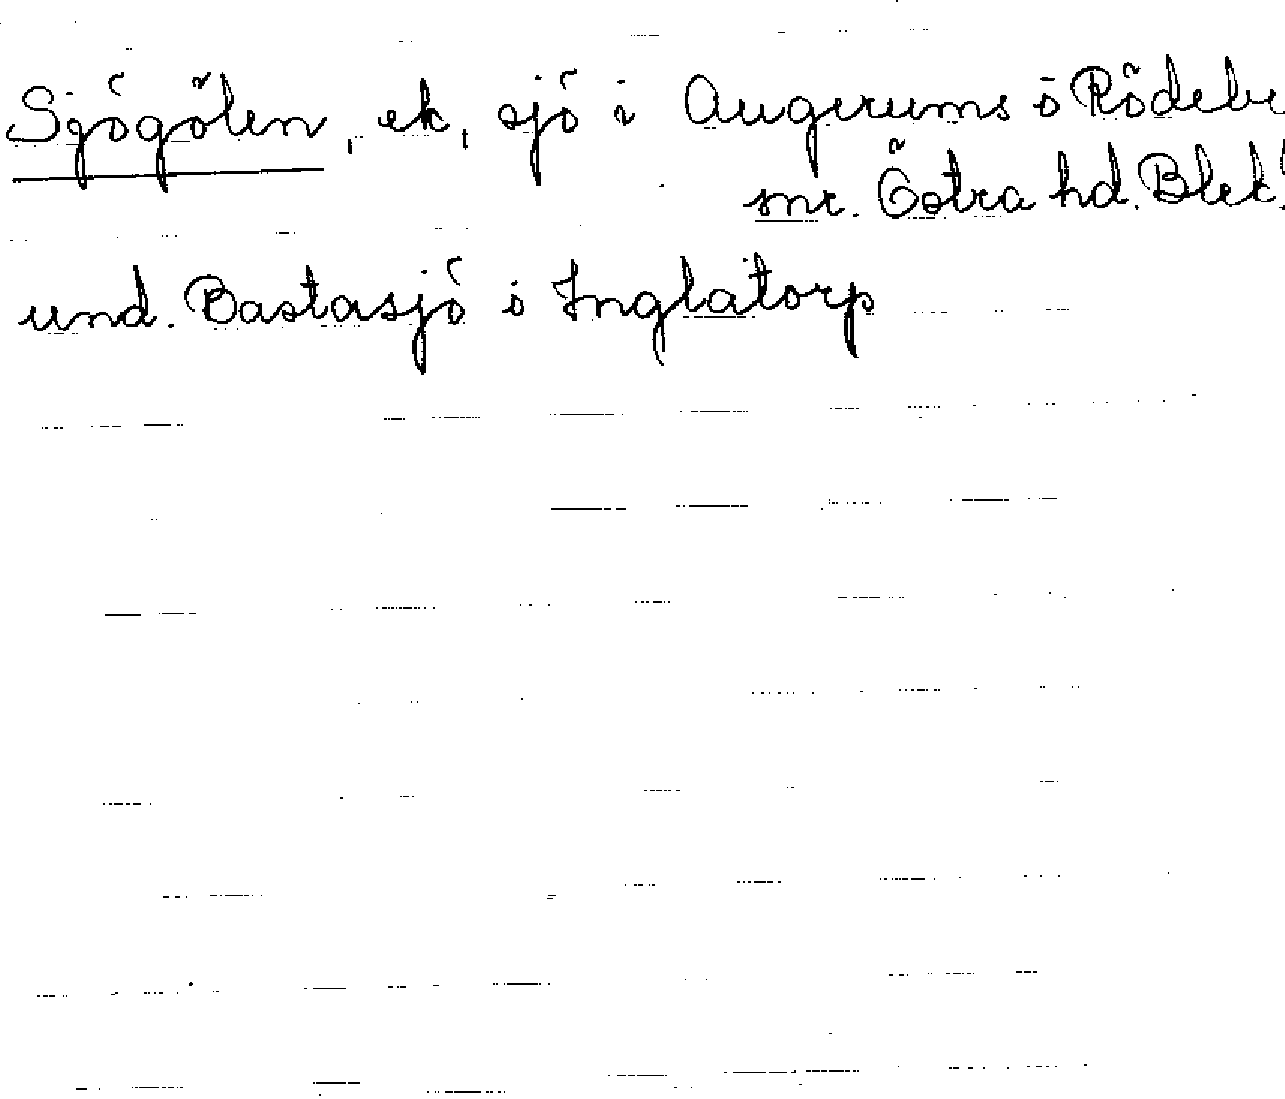 Sjögölen, ek, sjö i Augerums o Rödeby
snr. Östra hd. Blek.
und. Bastasjö o Inglatorp